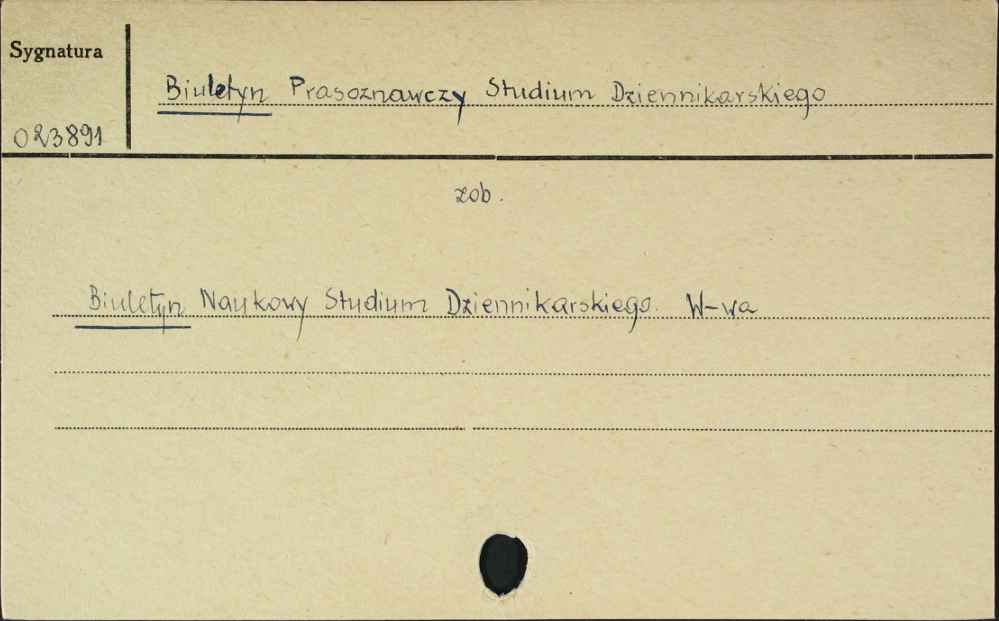 Sygnatura
Biuletyn Prasoznawczy Studium Dziennikarskiego
023891
zob.
Biuletyn Naukowy Studium Dziennikarskiego. W-wa